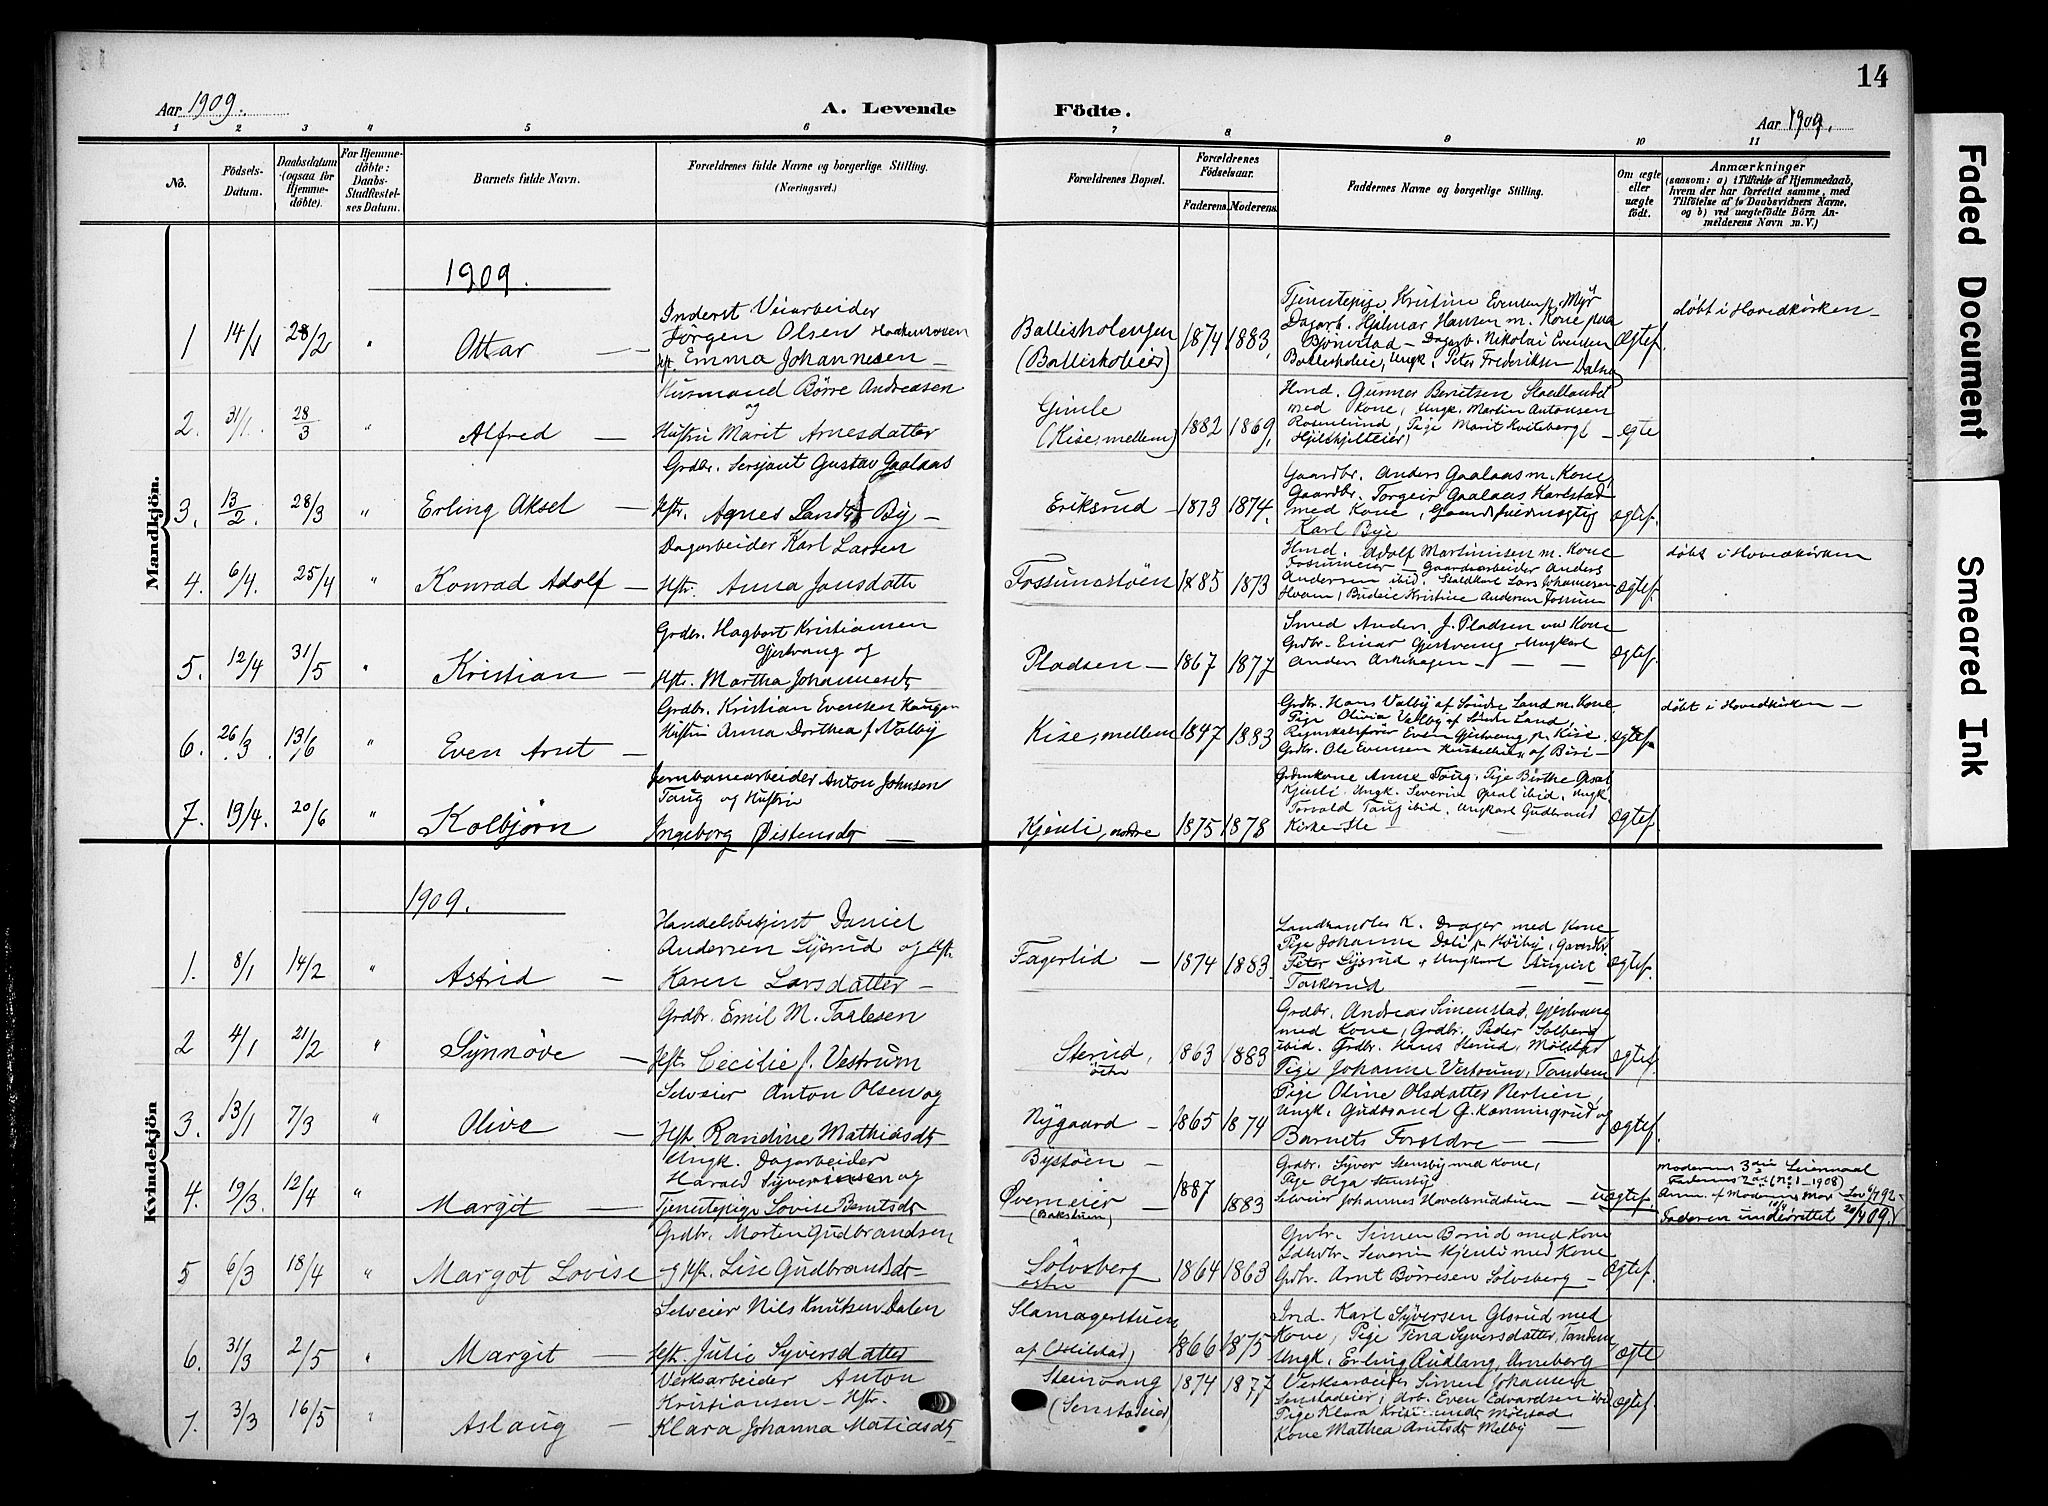 14
Aar 1909.
A. Levende
Födte.
Aar 1909.
1 2 3 4 5 6 7 8 9 10 11
No.
Fødsels-
Datum.
Daabsdatum
(ogsaa for
Hjemme-
døbte).
For Hjemme-
døbte:
Daabs-
Stadfæstel-
ses Datum.
Barnets fulde Navn.
Forældrenes fulde Navne og borgerlige Stilling.
(Næringsvei.)
Forældrenes Bopæl.
Forældrenes
Fødselsaar.
Faderens. Moderens.
Faddernes Navne og borgerlige Stilling.
Om ægte
eller
uægte
født.
Anmærkninger
(saasom: a) i Tilfælde af Hjemmedaab,
hvem der har forrettet samme, med
Tilføielse af to Daabsvidners Navne,
og b) ved uægtefødte Börn An-
melderens Navn m. V.)
Mandkjön.
1909.
1 14/1 28/2 " Ottar —
Inderst Veiarbeider
Jørgen Olsen
Hft. Emma Johannesen —
Balliskolengen
(Balliskoleie)
1874 1883,
Tjenestepige Kristine Evensen, Myr
Dagarb. Hjalmar Hansen m. Kone paa
Bjørnstad — Dagarb. Nikolai Evensen
Balliskoleie, Ungk. Peter Fredriksen Dalen
Ægtef.
døbt i Hovedkirken —
2. 31/1. 28/3 " Alfred —
Husmand Børre Andreasen
og
Hustru Marit Arnesdatter
Gimle
(Kise, mellem)
1882 1869,
Hmd. Gunner Berntsen
med Kone, Ungk. Martin Antonsen
Rosenlund, Pige Marit Kviteberg
— egte
3. 13/2. 28/3 " Erling Aksel —
Grdbr. Sersjant Gustav Gaalaas
Hft. Agnes By —
Eriksrud —
1873 1874.
Gaardbr. Anders Gaalaas m. Kone,
Gaardbr. Torgeir Gaalaas Harlstad
med Kone, Gaardsfuldmægtig
Karl Bye
ægtef.
4. 6/4. 25/4 " Konrad Adolf —
Dagarbeider Karl Larsen
Hft. Anna Jansdatte
Fossumstøen
1885 1873
Hmd. Adolf Martinusen m. Kone
Fossumeier — Gaardsarbeider Anders
Andersen ibid. Staldkarl Lars Johannesen
Hvam, Budeie Kristine Andersen Fossum
Ægtef.
døbt i Hovedkirken
5. 12/4 31/5 " Kristian —
Grdbr. Hagbart Kristiansen
Gjestvang og
Hft. Martha Johannesdt
Pladsen —
1867 1877
Smed Anders J. Pladsen m Kone
Grdbr. Einar Gjestvang — Ungkarl
Anders Askehagen — — —
Ægtef.
6. 26/3. 13/6 " Even Arnt —
Grdbr. Kristian Evensen Haugen
Hustru Anna Dorthea f. Valby
Kise, mellem
1847 1883
Grdbr. Hans Valby af Søndre Land m. Kone,
Pige Olivia Valby af Søndre Land,
Regnskabsfører Even Gjestvang p. Kise.
Grdbr. Ole Evensen af Biri —
ægtef.
døbt i Hovedkirken —
7. 19/4. 20/6 " Kolbjørn
Jernbanearbeider Anton Johnsen
Taug og Hustru
Ingeborg Øistensdt —
Kjenli, nordre
1875 1878
Grdmkone Anne Toug. Pige Birthe Opsal
Kjenli, Ungk. Severin Opsal ibid. Ungk
Torvald Taug ibid. Ungkarl Gudbrand
Kirke-Ste —
Ægtef.
Kvindekjön
1909.
1. 8/1 14/2 " Astrid —
Handelsbetjent Daniel
Andersen Lysrud og Hft.
Karen Larsdatter —
Fagerlid —
1874 1883.
Landhandler K. Drager med Kone
Pige Johanne Dæli p. Høiby, Gaardbr.
Peter Lysrud, Ungkarl August
Taskerud — —
ægtef.
2 4/1 21/2 " Synnöve —
Grdbr. Emil M. Toalesen
Hft. Cecilie f. Vestrum
Sterud,
östre
1863 1883
Grdbr. Andreas Simenstad, Gjestvang
med Kone, Grdbr. Peder Solberg
ibid. Grdbr. Hans Sterud, Mølstad
Pige Johanne Vestrum, Tandem
ægtef.
3. 13/1 7/3 " Olive —
Selveier Anton Olsen og
Hft. Randine Mathiasdt
Nygaard —
1865 1874
Pige Oline Olsdatter Nerlien,
Ungk. Gudbrand G. Kammingrud og
Barnets Forældre — —
ægtef.
4. 19/3. 12/4 " Margit —
Ungk. Dagarbeider
Harald Syversen og
Tjenestepige Lovise Berntsdt
Bystöen —
Øvemeier
(Bakstuen)
1887
1883
Grdbr. Syver Stensby med Kone,
Pige Olga Stensby
Selveier Johannes Hovelsrudstuen —
uægtef.
Moderens 3die Leiermaal
Faderens 2det (No 1 — 1908)
Anm. af Moderens Mor Lov 6/7 92 —
Faderen underrettet 20/4 09.
5 6/3 18/4 " Margot Lovise
Grdbr. Morten Gudbrandsen
og Hft. Lise Gudbrandsdt —
Sölvsberg
östre
1864 1863
Grdbr. Simen Borud med Kone
Ldhdbr. Severin Kjenli med Kone
Grdbr. Arnt Börresen Sölvsberg —
Ægtef.
6. 31/3 2/5 " Margit —
Selveier Nils Knutsen Dalen
Hft. Julie Syversdatter
Slamagerstuen
af (Hilstad)
1866 1875
Ind. Karl Syversen Glorud med
Kone, Pige Tina Syversdatter, Tandem
Ungk. Erling Rudlang, Arneberg
ægte
7. 3/3 16/5 " Aslaug —
Verksarbeider Anton
Kristiansen — Hft.
Klara Johanna Matiasdt
Steinvang
(Senstadeie)
1874 1877
Verksarbeider Simen Johansen
Senstadeier, Arb. Even Edvardsen ibid
Pige Klara Kristiansdt Mølstad
Kone Mathea Arntsdt Melby —
ægtef.
Faded Document
Smeared Ink